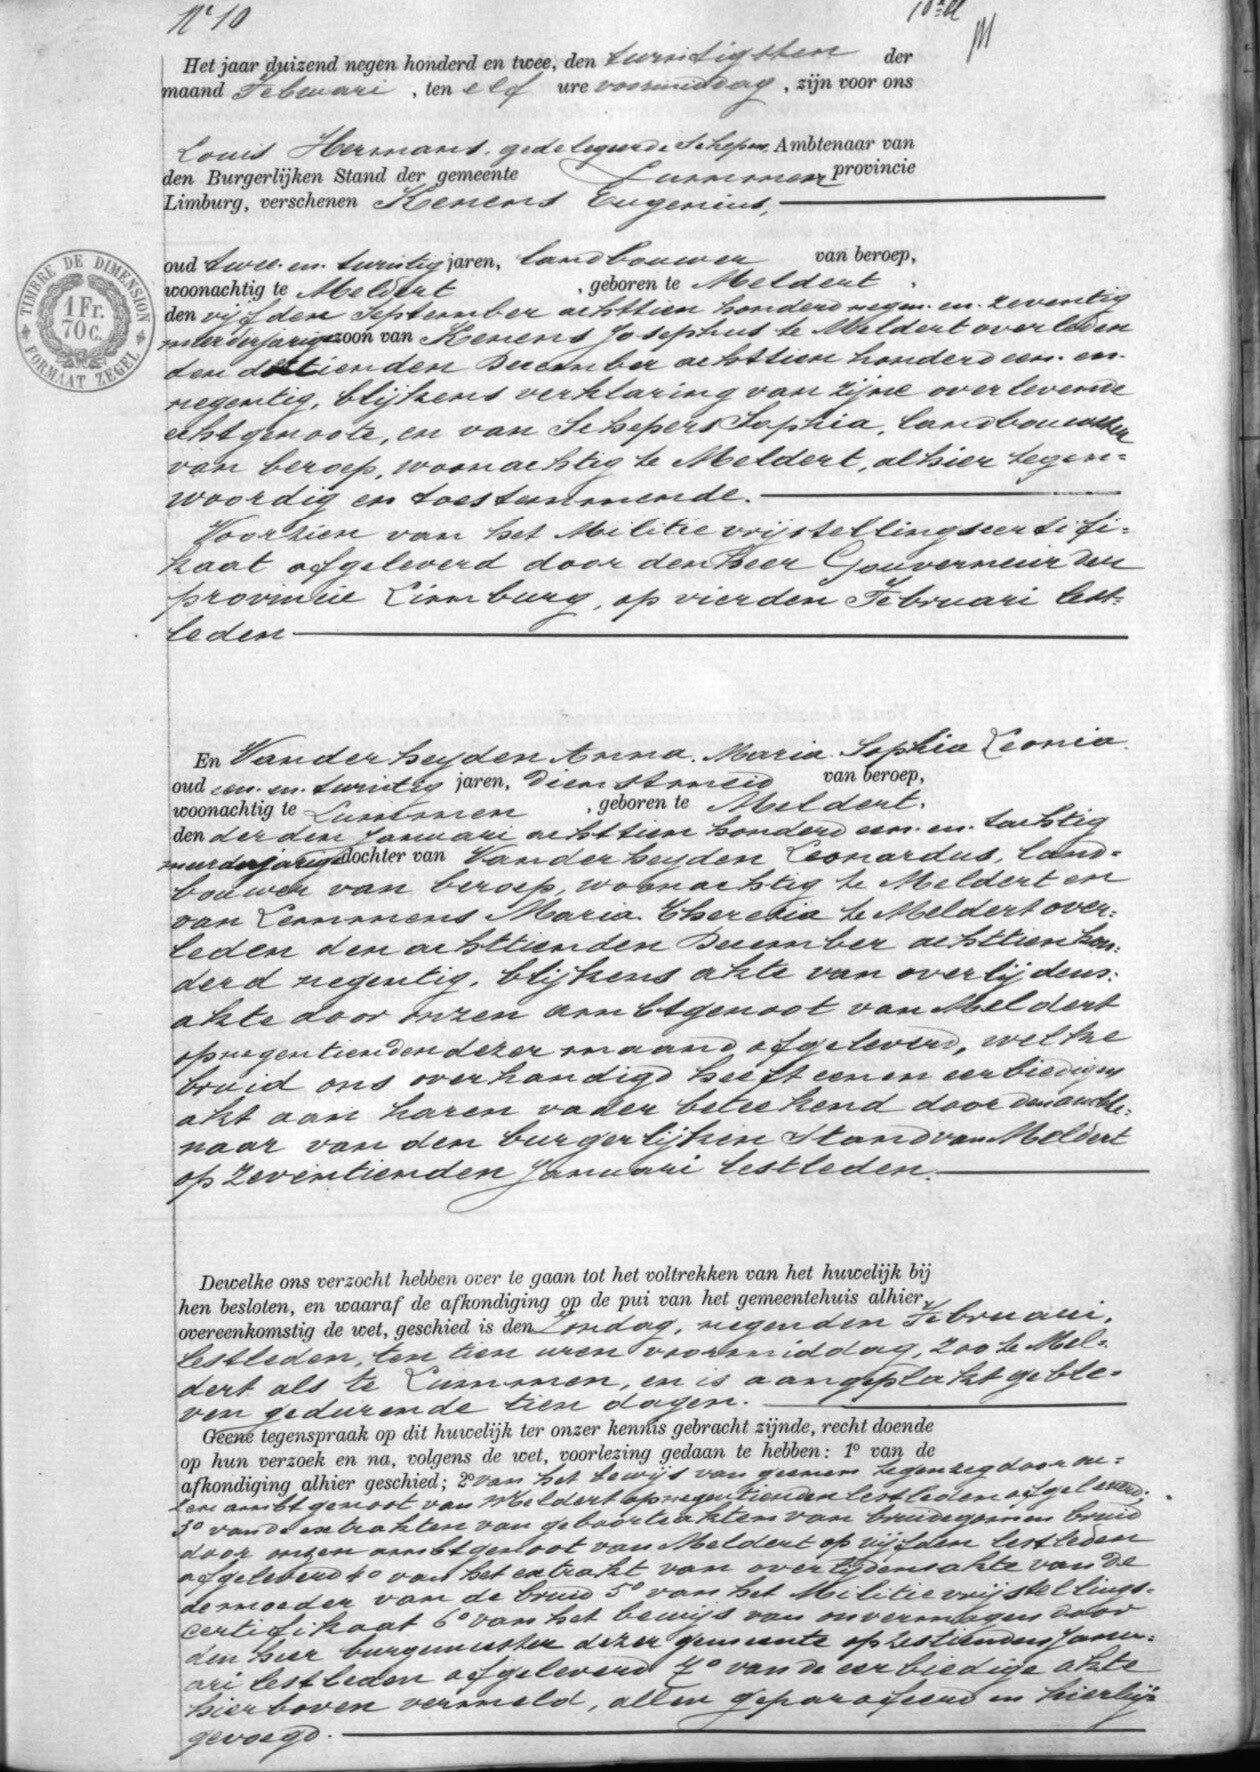 N° 10
Het jaar duizend negen honderd en twee, den twintigsten der
maand Februari, ten elf ure voormiddag, zijn voor ons
Louis Hermans, gedelegeerde Schepen, Ambtenaar van
den Burgerlijken Stand der gemeente Lummen provincie
Limburg, verschenen Kenens Eugenius,
oud twee-en-twintig jaren, landbouwer van beroep,
woonachtig te Meldert, geboren te Meldert,
den vijfden September achttien honderd negen-en-zeventig
meerderjarige zoon van Kenens Josephus te Meldert overleden
den dertienden December achttien honderd een-en-
negentig, blijkens verklaring van zijne overlevende
echtgenoote, en van Schepers Sophia, landbouwster
van beroep, woonachtig te Meldert, alhier tegen=
woordig en toestemmende.
Voorzien van het Militie vrijstellingscertifi-
kaat afgeleverd door den heer Gouverneur der
provincie Limburg, op vierden Februari lest=
leden
TIMBRE DE DIMENSION
1 Fr.
70 c.
FORMAAT ZEGEL
En Vanderheyden Anna Maria Sophia Leonia
oud een-en-twintig jaren, dienstmeid van beroep,
woonachtig te Lummen, geboren te Meldert,
den derden Januari achttien honderd een-en-tachtig
meerderjarige dochter van Vanderheyden Leonardus, land=
bouwer van beroep, woonachtig te Meldert en
van Lemmens Maria Theresia te Meldert over=
leden den achttienden December achttien hon=
derd negentig, blijkens akte van overlijdens=
akte door onzen ambtgenoot van Meldert
op negentienden dezer maand afgeleverd, welke
bruid ons overhandigd heeft eenen eerbiedigen
akt aan haren vader beteekend door den ambte=
naar van den burgerlijken Stand van Meldert
op zeventienden Januari lestleden.
Dewelke ons verzocht hebben over te gaan tot het voltrekken van het huwelijk bij
hen besloten, en waaraf de afkondiging op de pui van het gemeentehuis alhier,
overeenkomstig de wet, geschied is den Zondag, negenden Februari,
lestleden, ten tien uren voormiddag, zoo te Mel=
dert als te Lummen, en is aangeplakt geble=
ven gedurende tien dagen.
Geene tegenspraak op dit huwelijk ter onzer kennis gebracht zijnde, recht doende
op hun verzoek en na, volgens de wet, voorlezing gedaan te hebben: 1° van de
afkondiging alhier geschied; 2° van het bewijs van geenen tegenzeg door on=
zen ambtgenoot van Meldert op negentienden lestleden afgeleverd;
3° van de extrakten van geboorteakten van bruidegom en bruid
door onzen ambtgenoot van Meldert op vijfden lestleden
afgeleverd 4° van het extrakt van overlijdensakte van de
moeder van de bruid 5° van het Militie vrijstellings=
certifikaat 6° van het bewijs van onvermogen door
den heer burgemeester dezer gemeente op zestienden Janu=
ari lestleden afgeleverd 7° van de eerbiedige akte
hierboven vermeld, allen geparafeerd en hierbij
gevoegd.